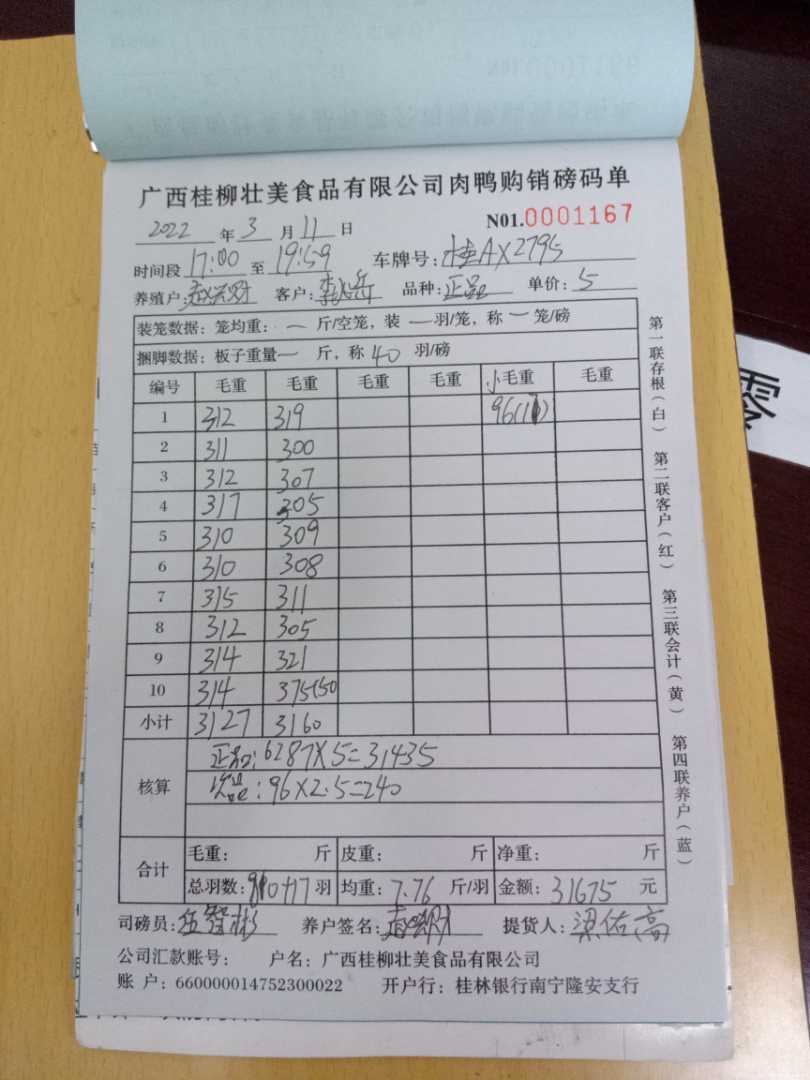 广西桂柳壮美食品有限公司肉鸭购销磅码单
2022 年 3 月 11 日 N01.0001167
时间段 17:00 至 19:59 车牌号: 桂AX2795
养殖户: 客户: 品种: 正品 单价: 5
装笼数据: 笼均重: 一 斤/空笼, 装 一 羽/笼, 称 一 笼/磅
捆脚数据: 板子重量 一 斤, 称 40 羽/磅
编号 毛重 毛重 毛重 毛重 小毛重 毛重
1 312 319 96(17)
2 311 300
3 312 307
4 317 305
5 310 309
6 310 308
7 315 311
8 312 305
9 314 321
10 314 375(50
小计 3127 3160
核算 正品: 6287×5=31435
次品: 96×2.5=240
合计 毛重: 斤 皮重: 斤 净重: 斤
总羽数: 810+17 羽 均重: 7.76 斤/羽 金额: 31675 元
司磅员: 养户签名: 提货人: 梁佑高
公司汇款账号: 户名: 广西桂柳壮美食品有限公司
账 户: 660000014752300022 开户行: 桂林银行南宁隆安支行
第一联存根(白) 第二联客户(红) 第三联会计(黄) 第四联养户(蓝)
零